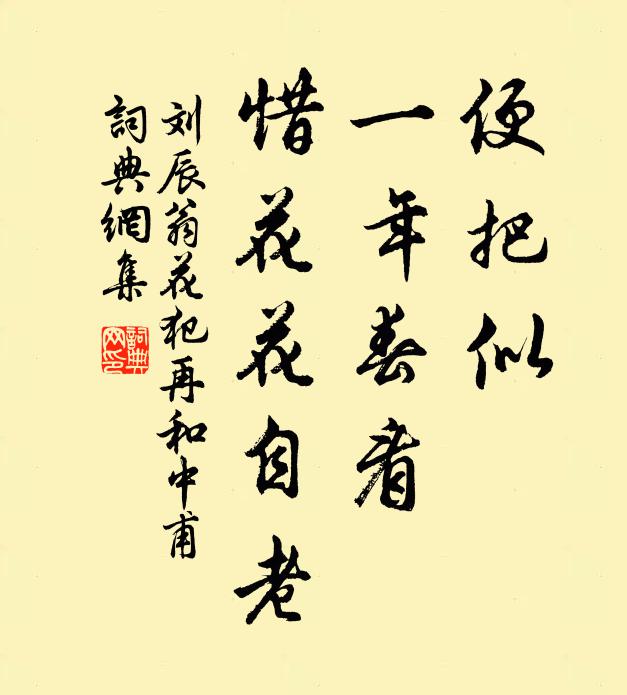 便把似
一年春看
惜花花自老
刘辰翁花犯再和中甫
詞典網集
詞典网印